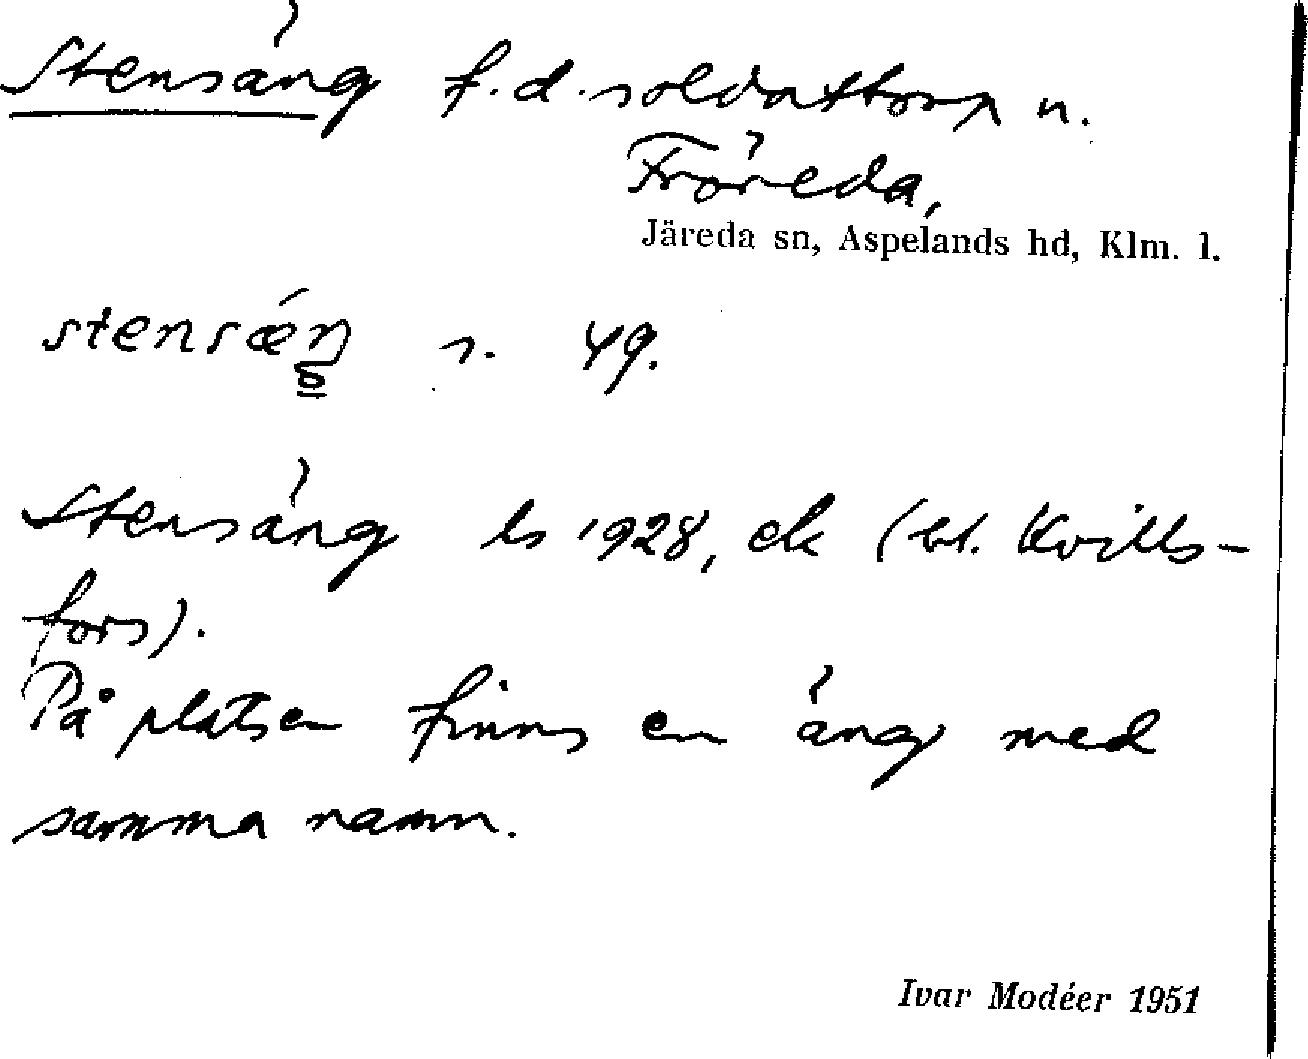 Stensäng f.d. soldattorp u.
Fröreda,
Järeda sn, Aspelands hd, Klm. l.
stensǽŋ s. 49.
Stensäng ls 1928, ek (bl. Kvills-
fors).
På platsen finns en äng med
samma namn.
Ivar Modéer 1951